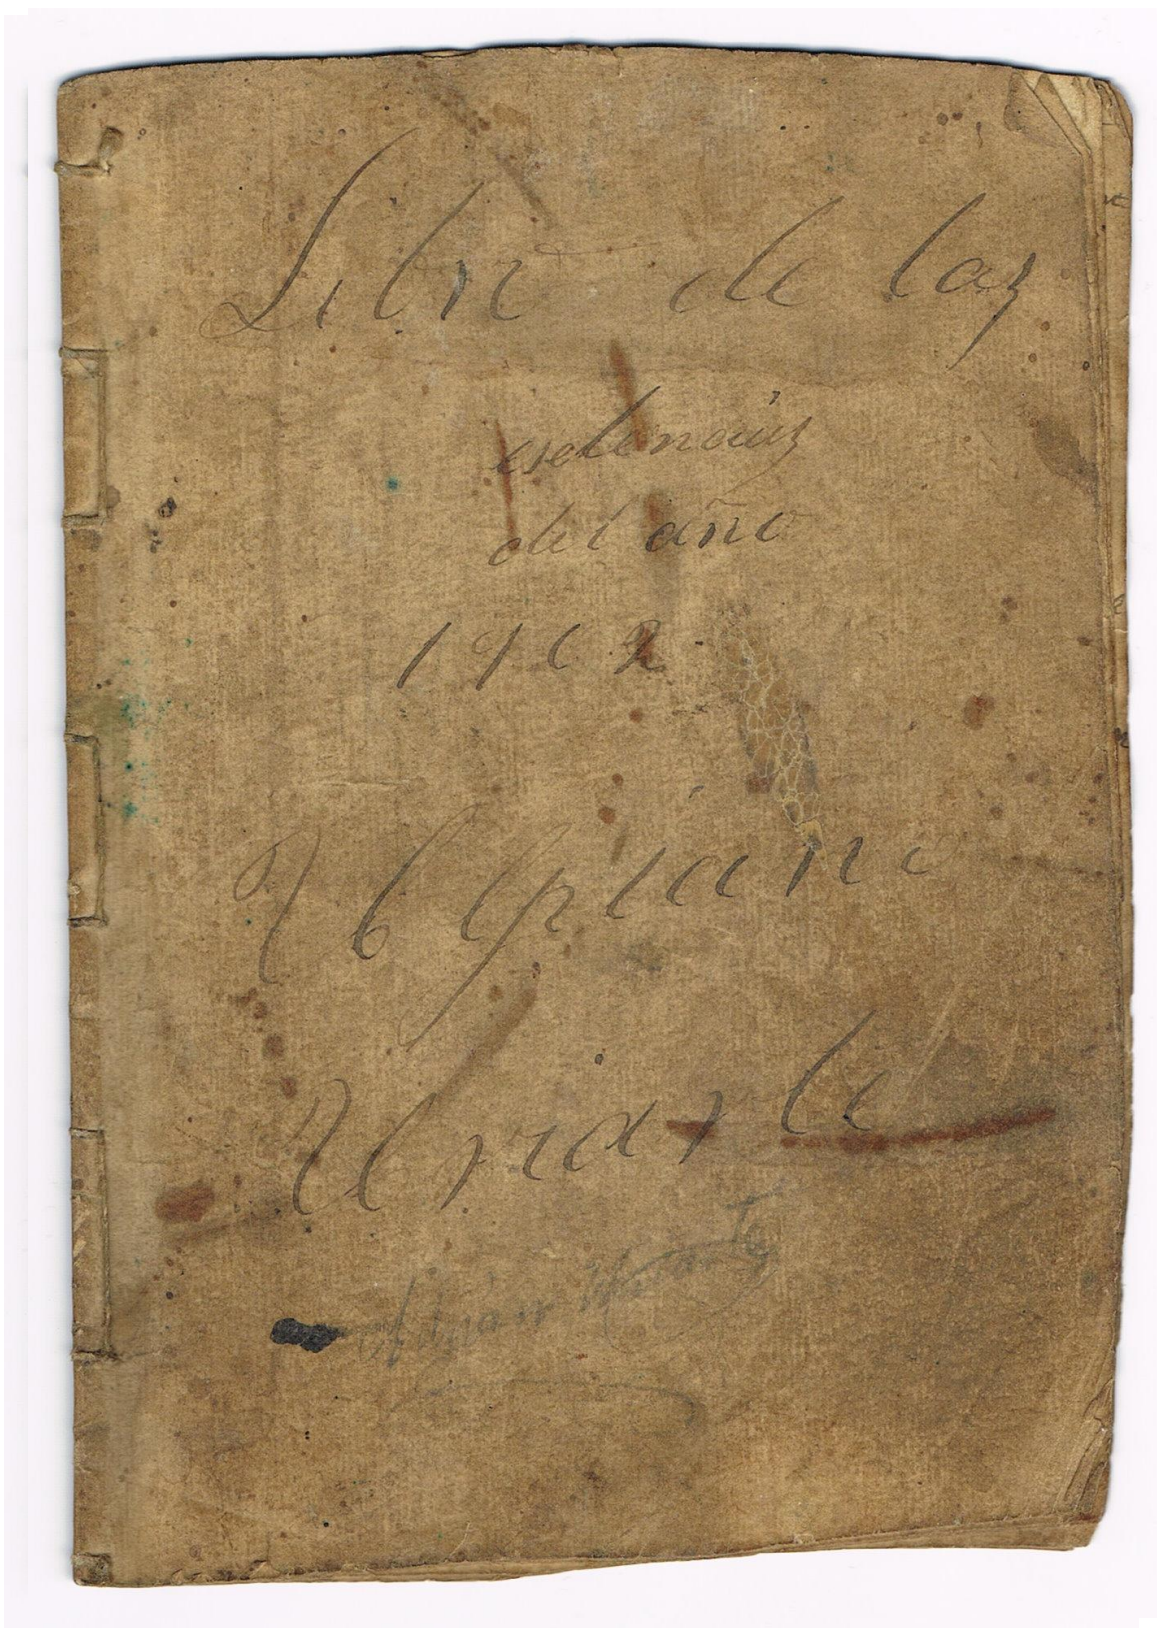 Libro de laz
eselenciaz
del año
1902
Ulpiano
Uriarte